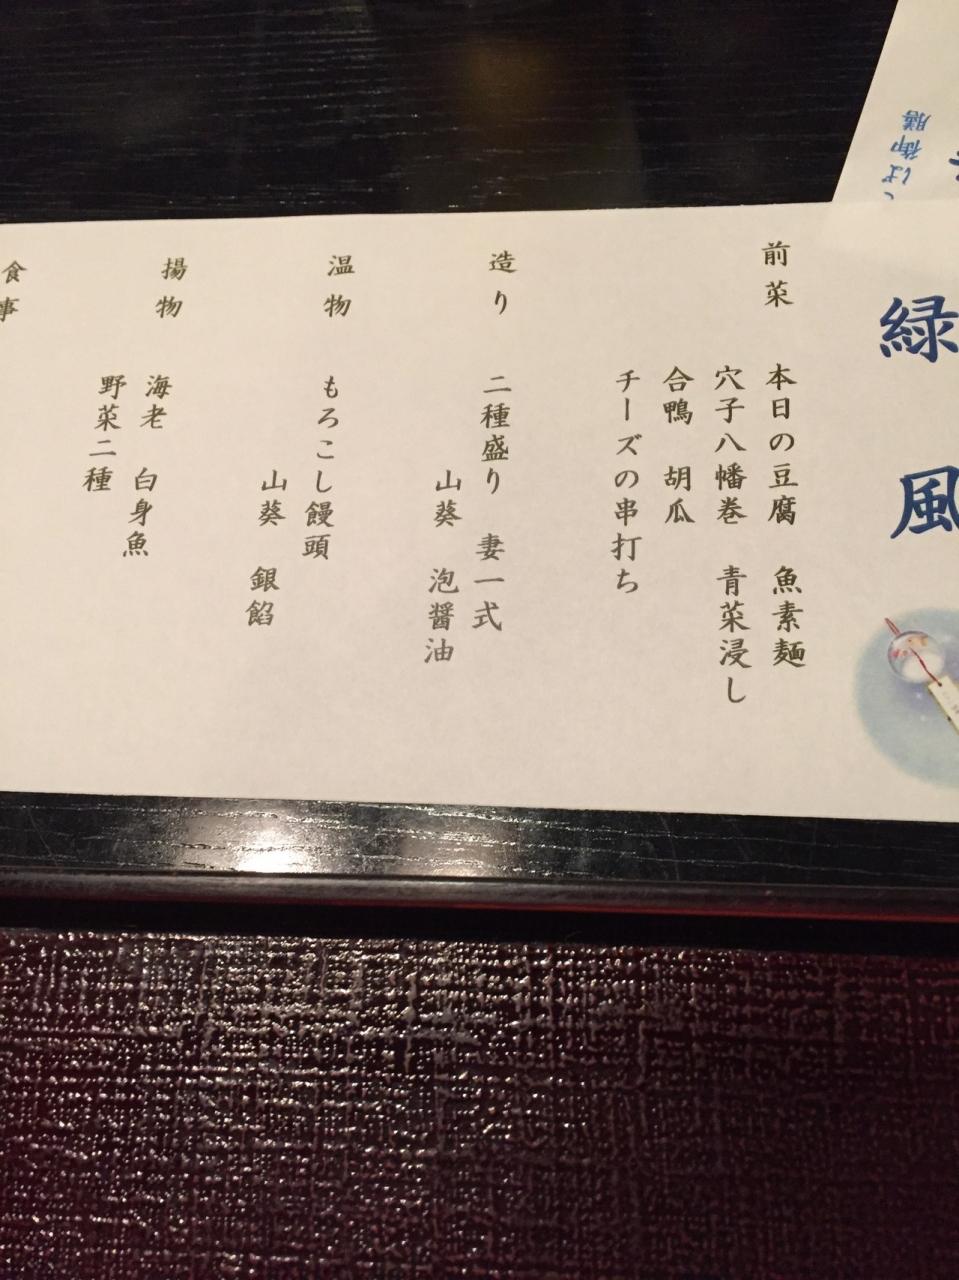 緑風
前菜
本日の豆腐 魚素麺
穴子八幡巻 青菜浸し
合鴨 胡瓜
チーズの串打ち
造り
二種盛り 妻一式
山葵 泡醤油
温物
もろこし饅頭
山葵 銀餡
揚物
海老 白身魚
野菜二種
食事
ば御膳